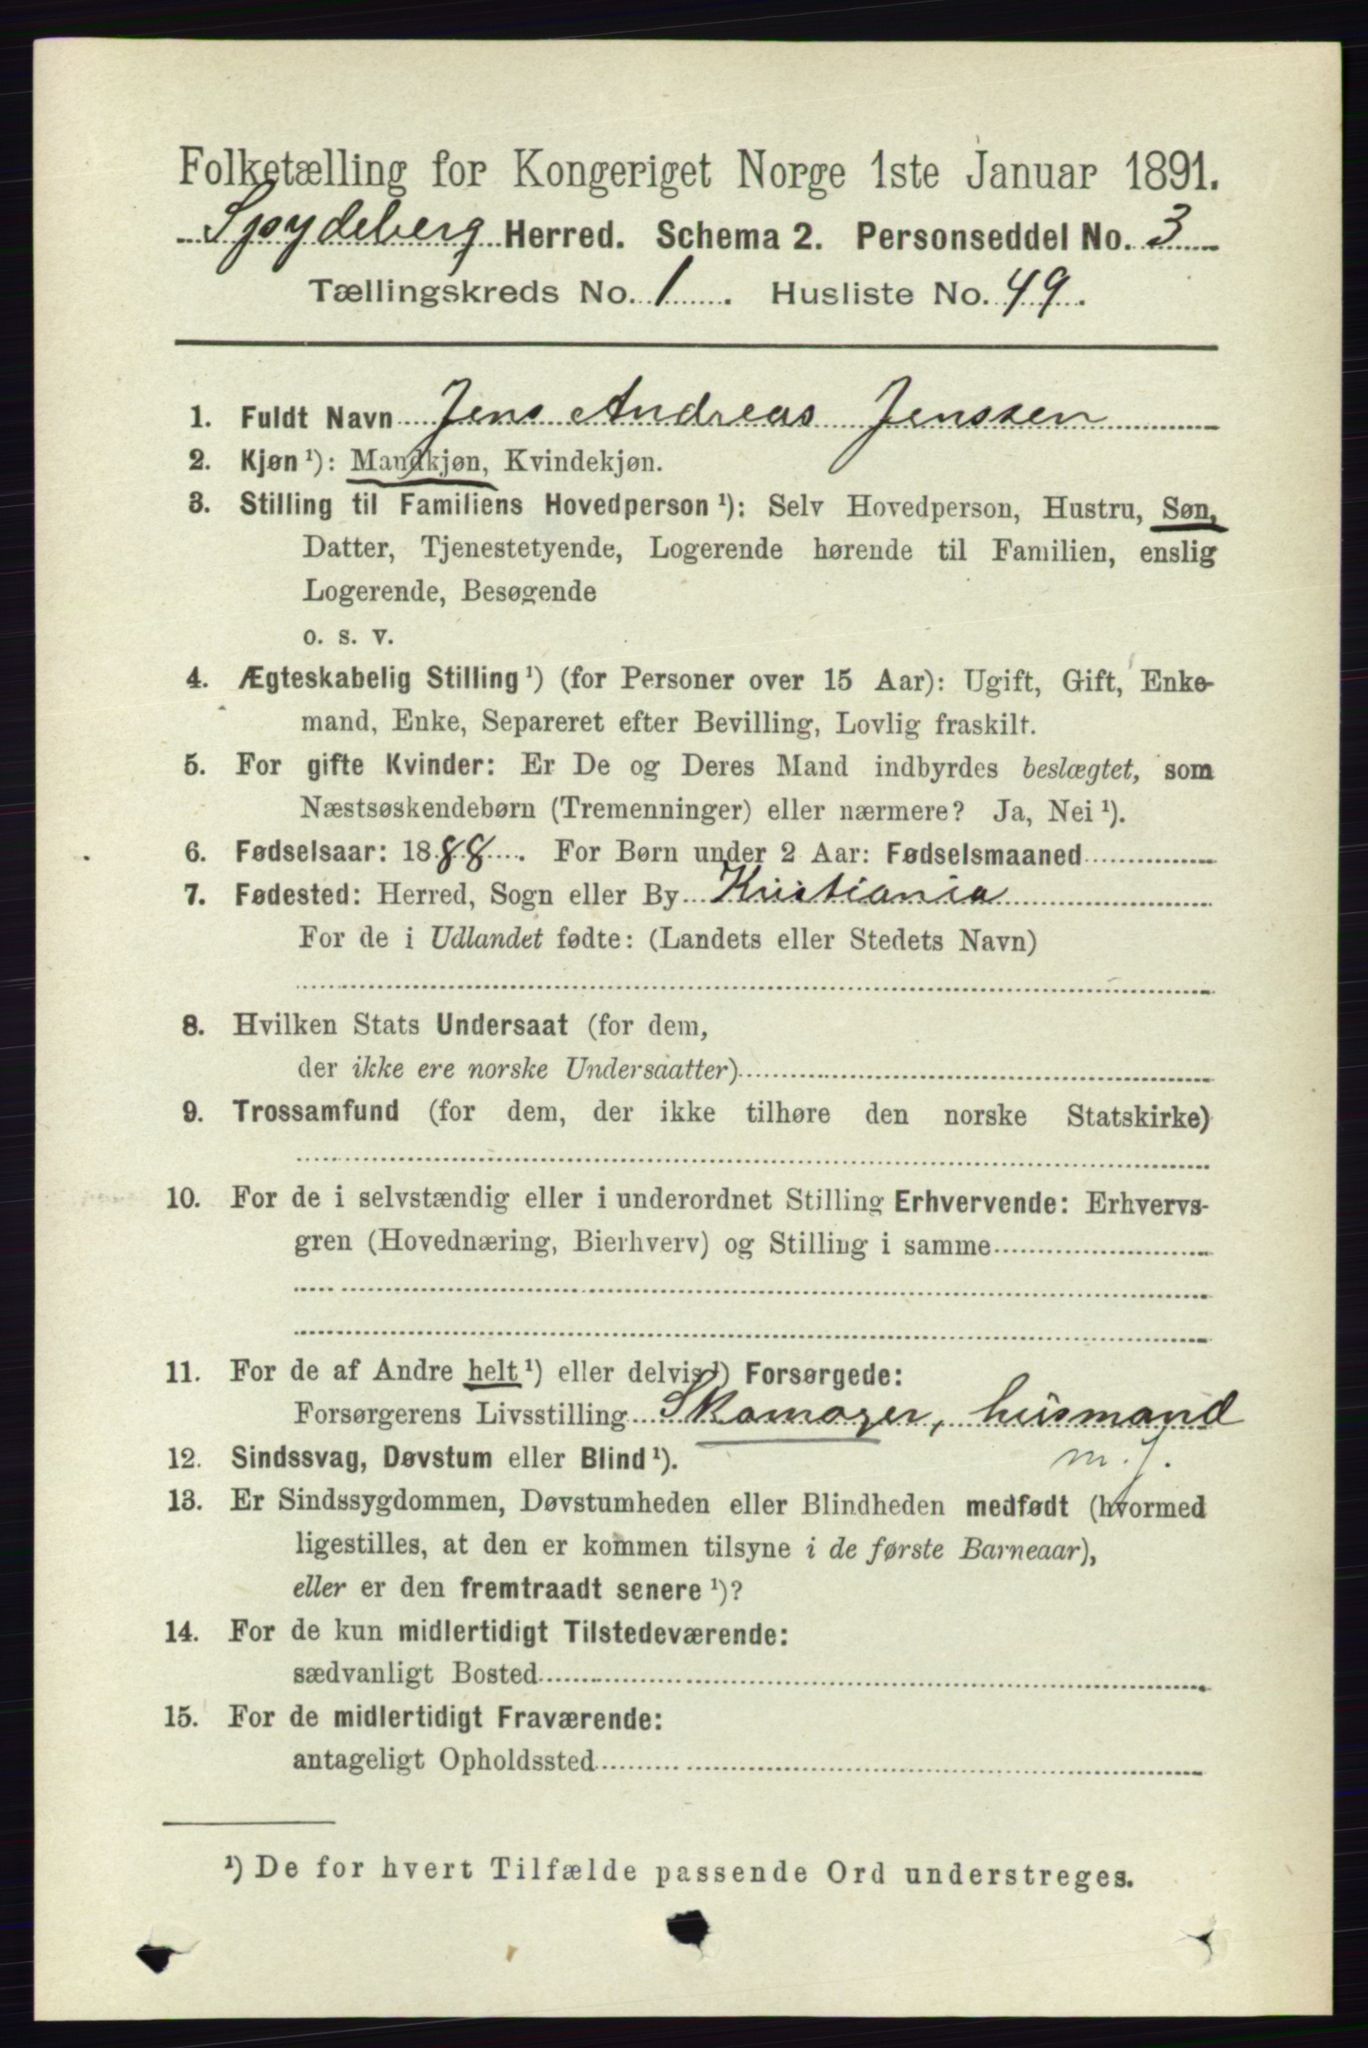 Folketælling for Kongeriget Norge 1ste Januar 1891.
Spydeberg Herred. Schema 2. Personseddel No. 3
Tællingskreds No. 1. Husliste No. 49.
1. Fuldt Navn Jens Andreas Jenssen
2. Kjøn ¹): Mandkjøn, Kvindekjøn.
3. Stilling til Familiens Hovedperson ¹): Selv Hovedperson, Hustru, Søn,
Datter, Tjenestetyende, Logerende hørende til Familien, enslig
Logerende, Besøgende
o. s. v.
4. Ægteskabelig Stilling ¹) (for Personer over 15 Aar): Ugift, Gift, Enke-
mand, Enke, Separeret efter Bevilling, Lovlig fraskilt.
5. For gifte Kvinder: Er De og Deres Mand indbyrdes beslægtet, som
Næstsøskendebørn (Tremenninger) eller nærmere? Ja, Nei ¹).
6. Fødselsaar: 1888. For Børn under 2 Aar: Fødselsmaaned
7. Fødested: Herred, Sogn eller By Kristiania
For de i Udlandet fødte: (Landets eller Stedets Navn)
8. Hvilken Stats Undersaat (for dem,
der ikke ere norske Undersaatter)
9. Trossamfund (for dem, der ikke tilhøre den norske Statskirke)
10. For de i selvstændig eller i underordnet Stilling Erhvervende: Erhvervs-
gren (Hovednæring, Bierhverv) og Stilling i samme
11. For de af Andre helt ¹) eller delvis ¹) Forsørgede:
Forsørgerens Livsstilling Skomager, husmand
m. j.
12. Sindssvag, Døvstum eller Blind ¹).
13. Er Sindssygdommen, Døvstumheden eller Blindheden medfødt (hvormed
ligestilles, at den er kommen tilsyne i de første Barneaar),
eller er den fremtraadt senere ¹)?
14. For de kun midlertidigt Tilstedeværende:
sædvanligt Bosted
15. For de midlertidigt Fraværende:
antageligt Opholdssted
¹) De for hvert Tilfælde passende Ord understreges.